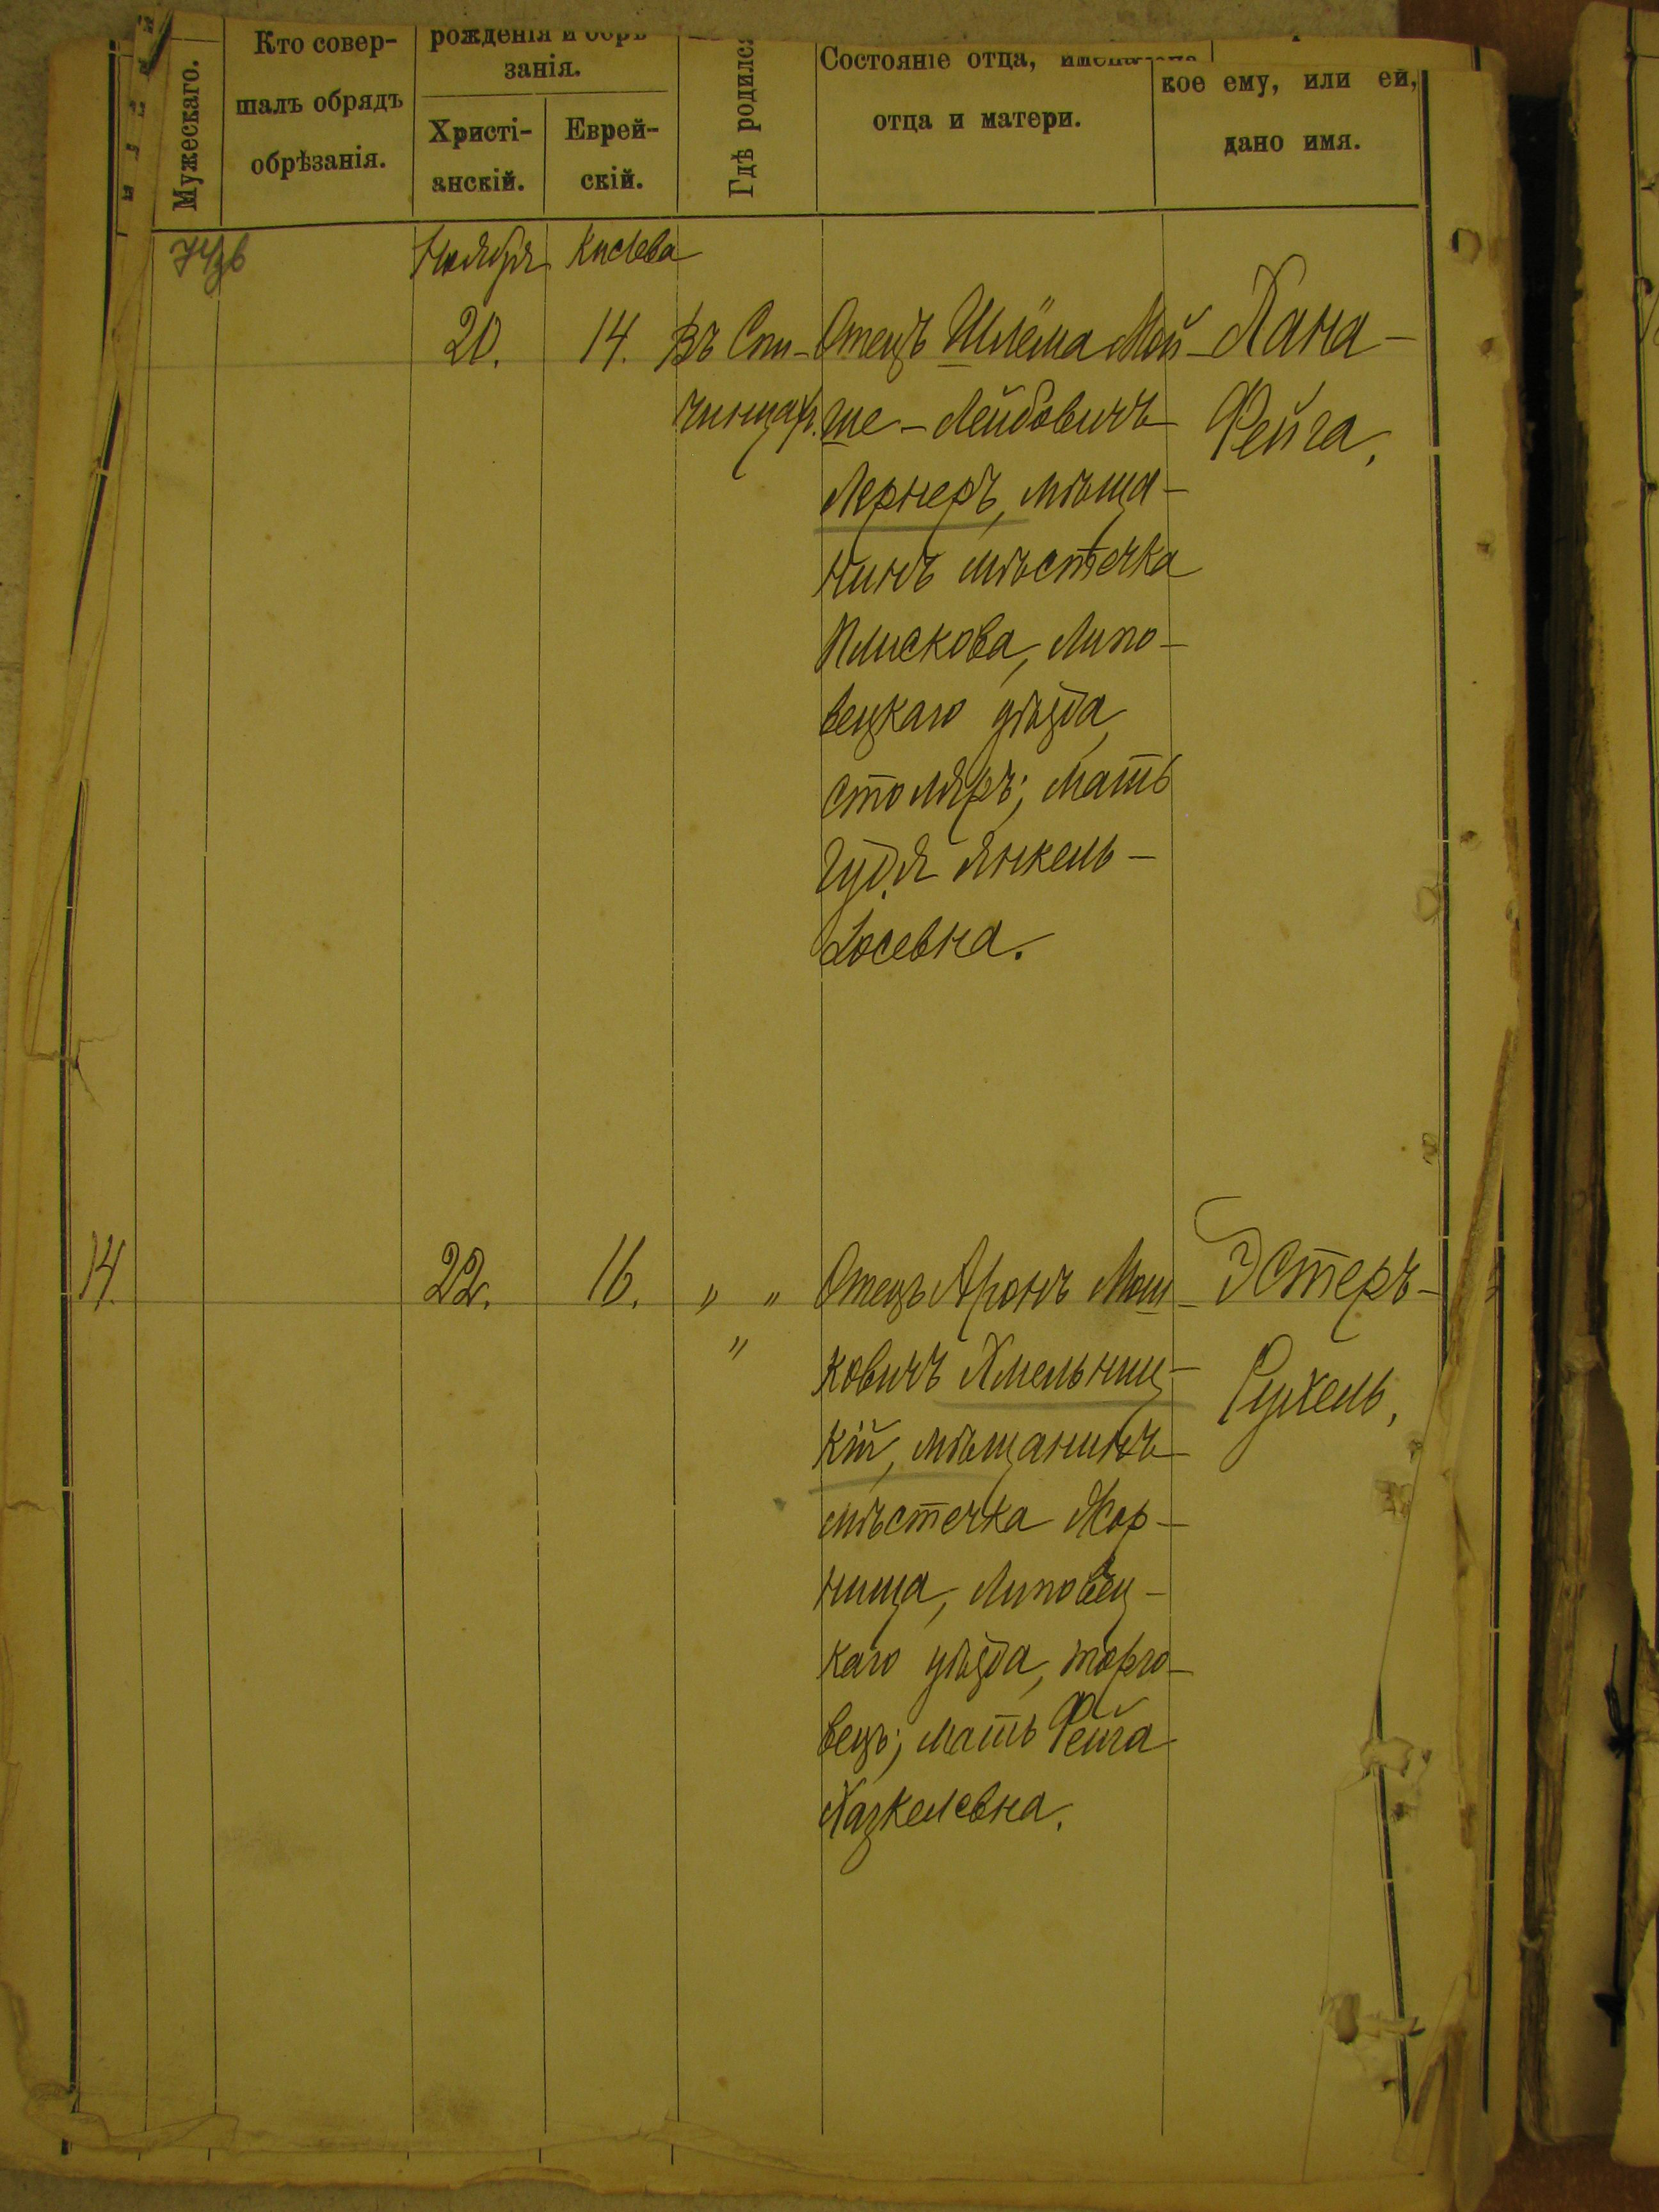 Мужескаго.
Кто совер-
шалъ обрядъ
обрѣзанія.
рожденія и обрѣ
занія.
Христі-
анскій.
Еврей-
скій.
Гдѣ родился
Состояніе отца, имена
отца и матери.
кое ему, или ей,
дано имя.
Ноября Кислева
20. 14. Въ Спи-
чинцахъ.
Отецъ Шлёма Мой-
ше-Лейбовичъ
Лернеръ, мѣща-
нинъ мѣстечка
Плискова, Липо-
вецкаго уѣзда,
столяръ; мать
Гудя Янкель-
Іосевна.
Хана-
Фейга.
14. 22. 16. " "
"
Отецъ Аронъ Мош-
ковичъ Хмельниц-
кій, мѣщанинъ
мѣстечка Жор-
нища, Липовец-
каго уѣзда, торго-
вецъ; мать Фейга
Хазкелевна.
Эстеръ-
Рухель.